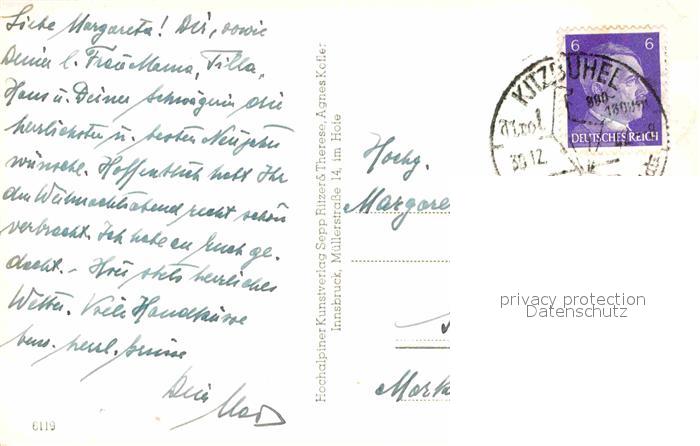 Liebe Margareta! Dir, sowie
Deiner l. Frau Mama, Tilla,
Hans u. Deiner Schwägerin die
herzlichsten u. besten Neujahrs
wünsche. Hoffentlich habt Ihr
den Weihnachtsabend recht schön
verbracht. Ich habe an Euch ge-
dacht. - Hier stets herrliches
Wetter. Viele Handküsse
bzw. herzl. Grüsse
Dein
6119
Hochalpiner Kunstverlag Sepp Ritzer & Therese, Agnes Kofler
Innsbruck, Müllerstraße 14, im Hofe
6 6
DEUTSCHES REICH
KITZBÜHEL
(Tirol)
30.12.
Hochg.
Margare
Mark
privacy protection
Datenschutz